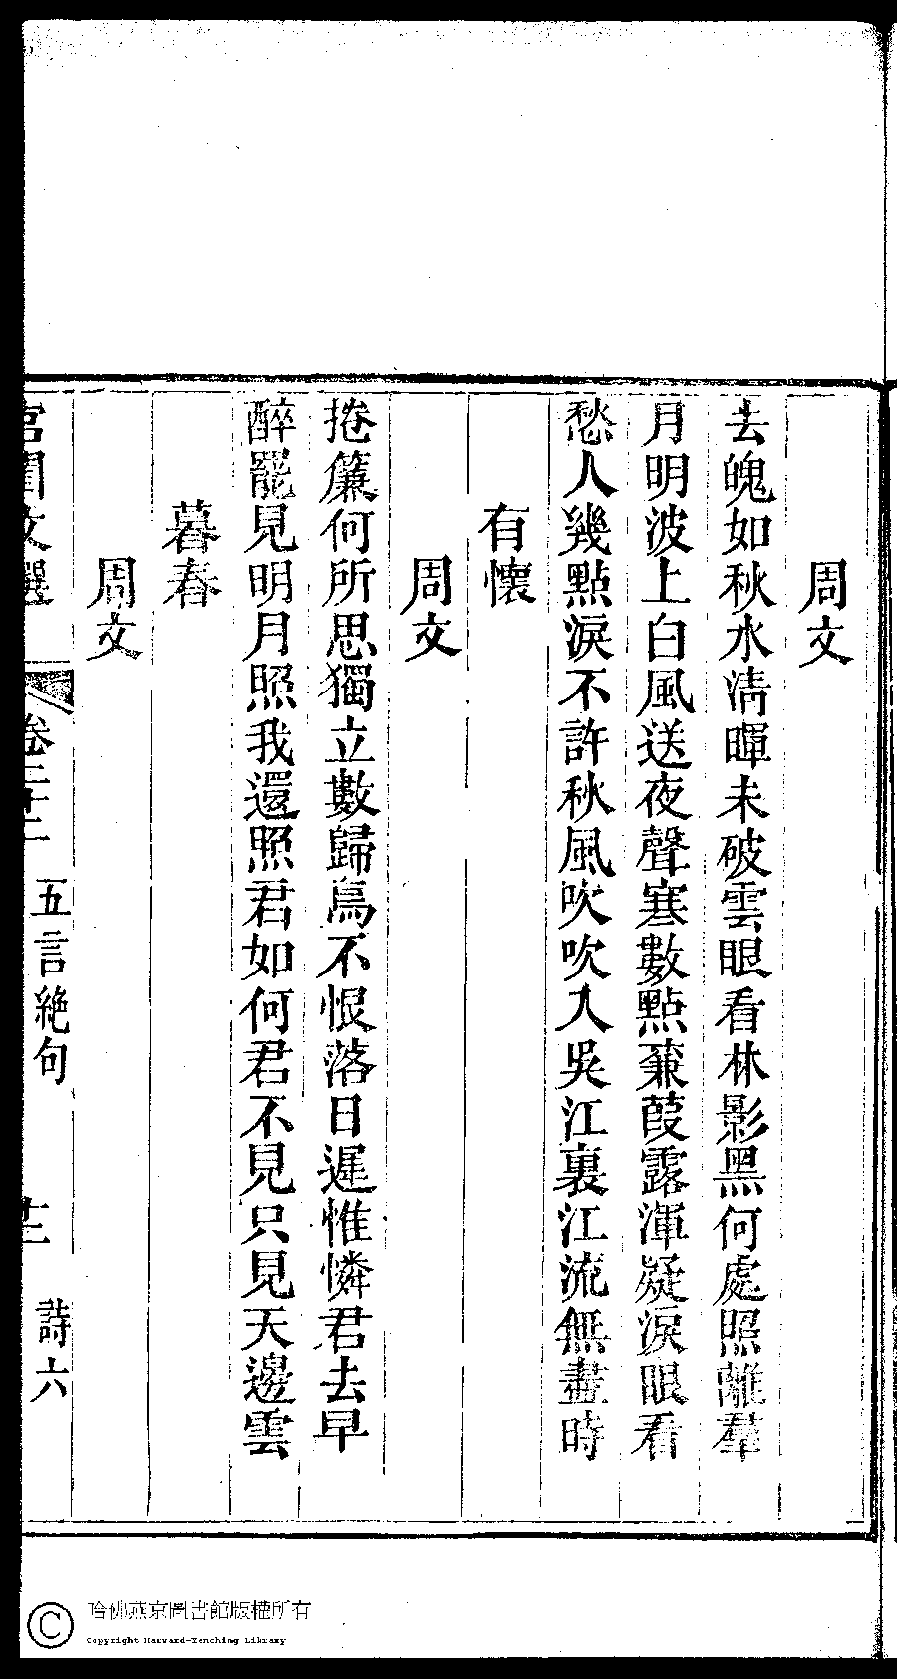 周文
去魄如秋水清暉未破雲眼看林影黑何處照離羣
月明波上白風送夜聲寒數點蒹葭露渾凝淚眼看
愁人幾點淚不許秋風吹吹入吳江裏江流無盡時
有懷
周文
捲簾何所思獨立數歸鳥不恨落日遲惟憐君去早
醉罷見明月照我還照君如何君不見只見天邊雲
暮春
周文
宮閨文選 卷二十二 五言絶句 十二 詩六
哈佛燕京圖書館版權所有
Copyright Harvard-Yenching Library